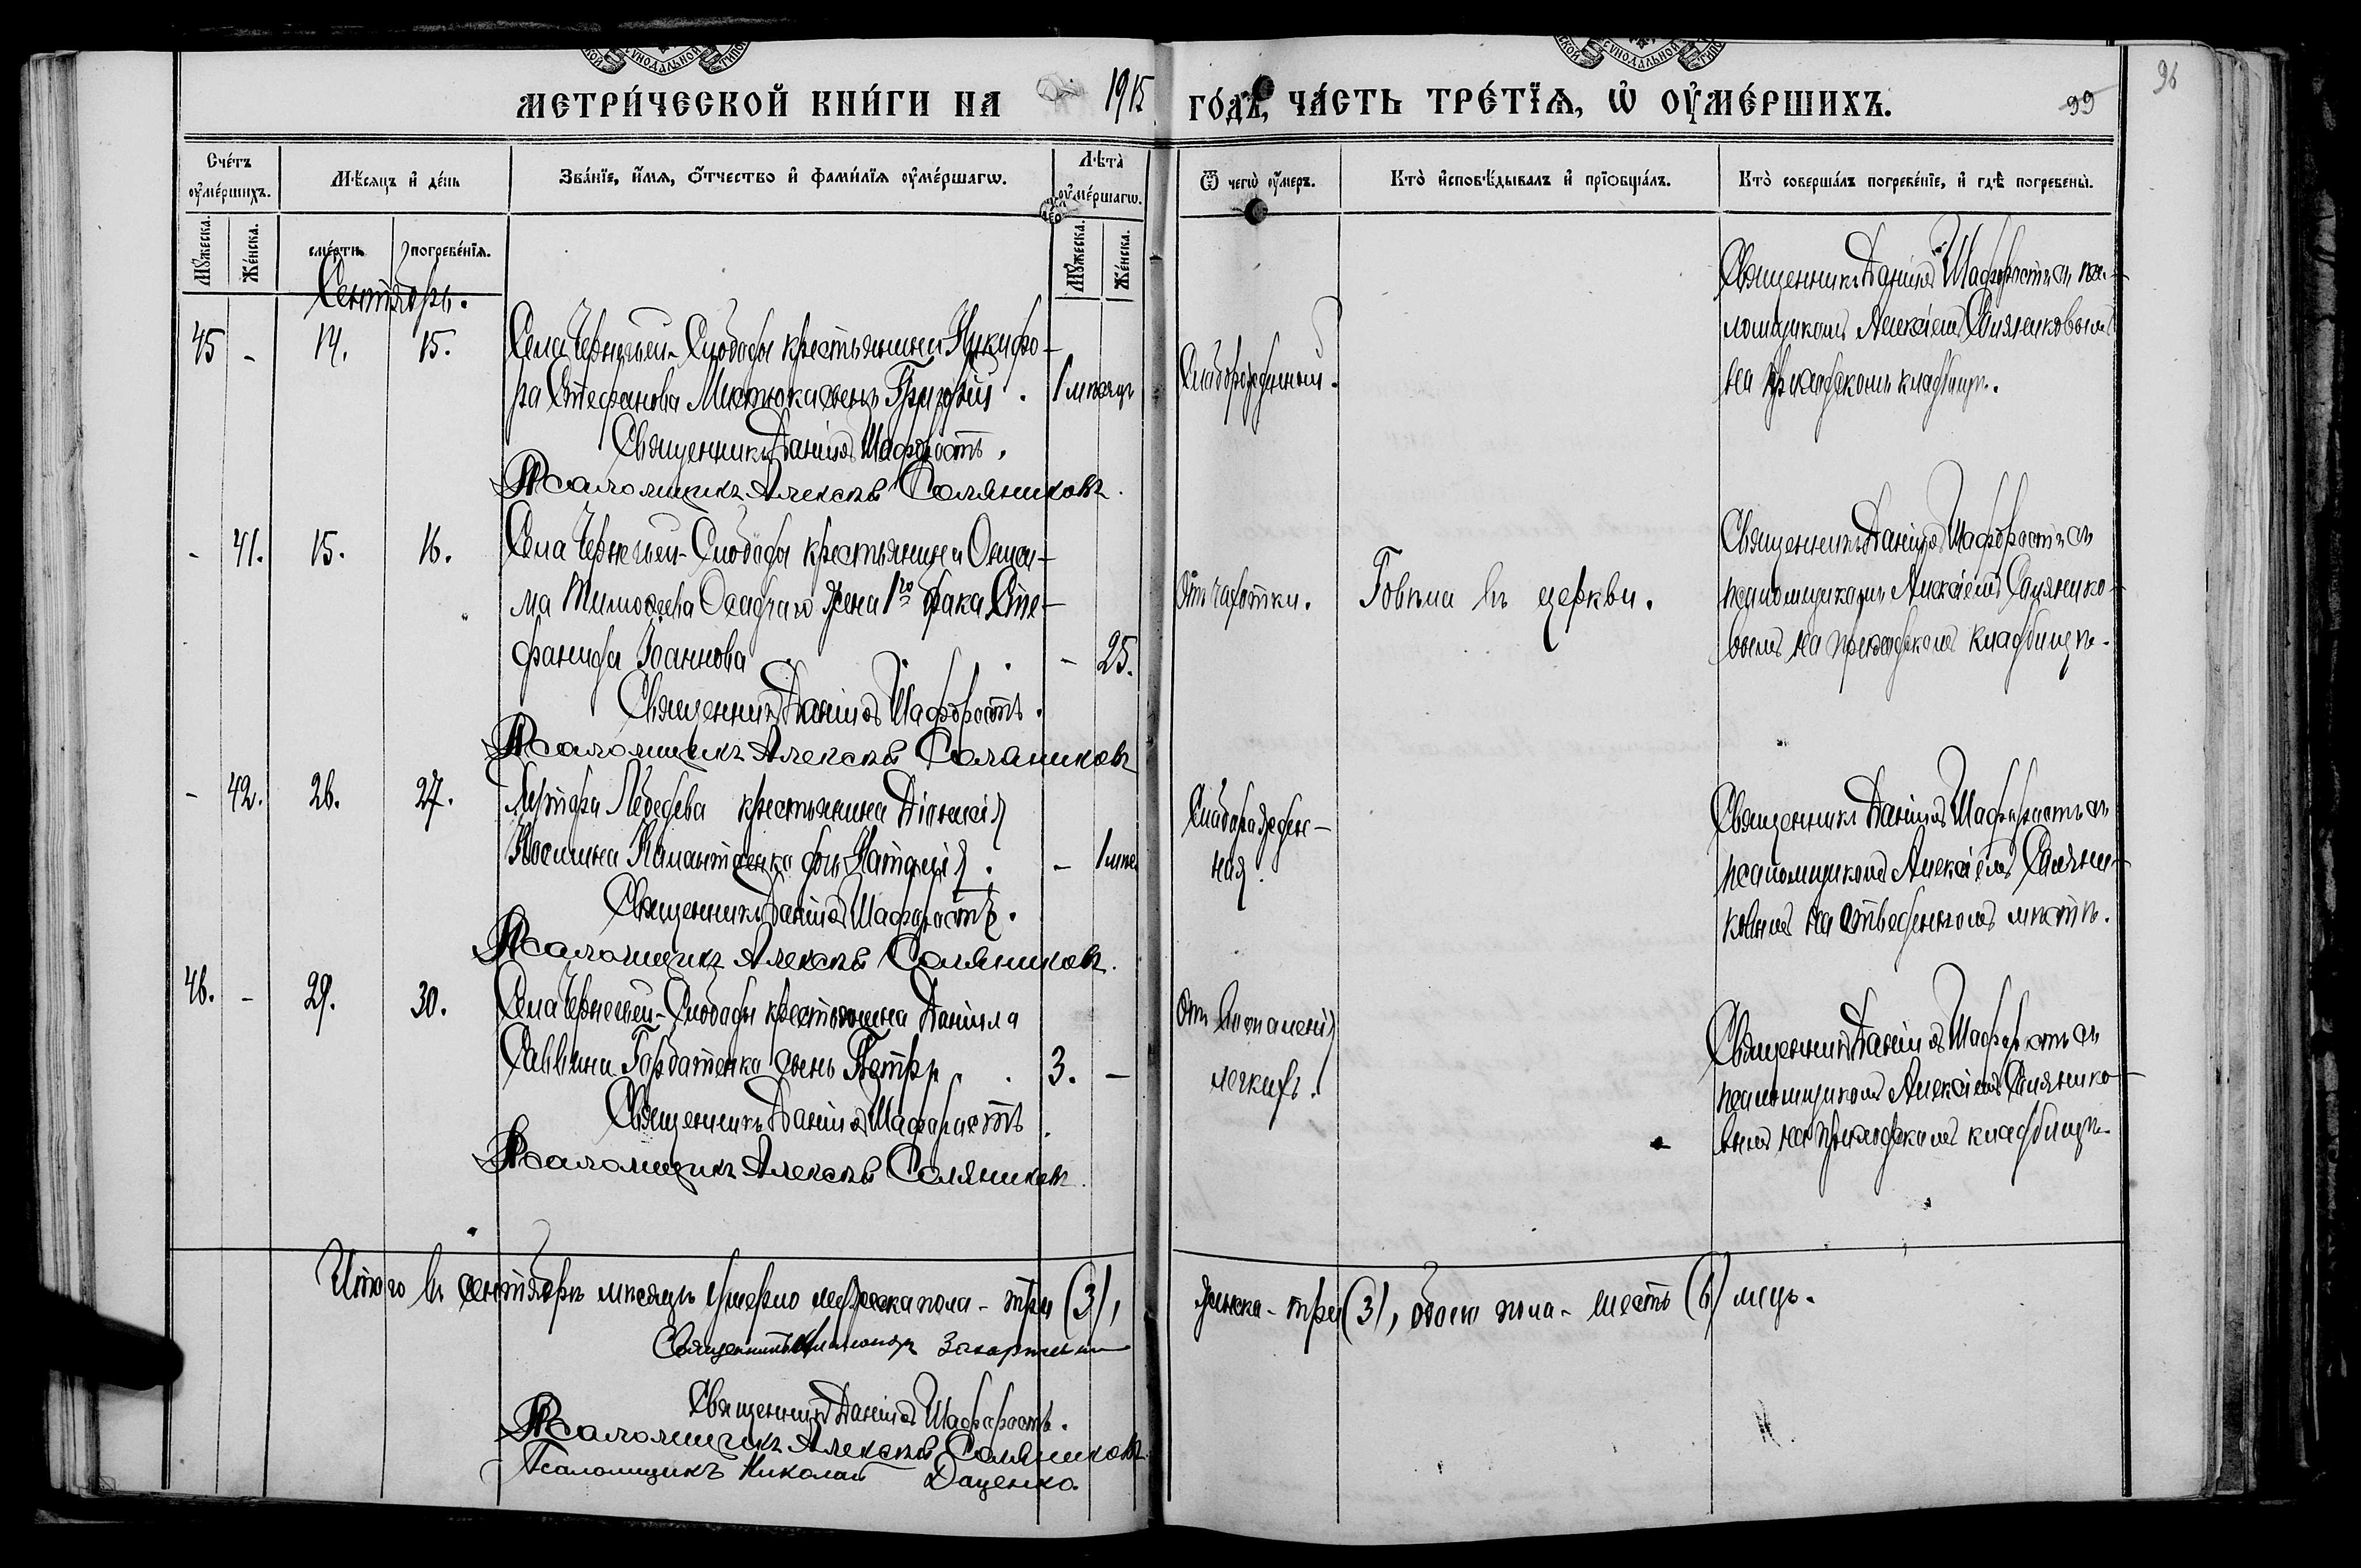 МЕТРИ́ЧЕСКОЙ КНИ́ГИ НА 1915 ГО́ДЪ, ЧА́СТЬ ТРЕ́ТЇѦ, Ѡ ОУ҆МЕ́РШИХЪ.
99
96
Сче́тъ оу҆ме́ршихъ.
Мѣ́сяцъ и҆ де́нь
Зва́нїе, и҆́мя, ѻ҆́тчество и҆ фами́лїя оу҆ме́ршагѡ.
Лѣ́та оу҆ме́ршагѡ.
Ѿ чегѡ̀ оу҆́меръ.
Кто̀ и҆сповѣ́дывалъ и҆ прїѻбща́лъ.
Кто̀ соверша́лъ погребе́нїе, и҆ гдѣ̀ погребены̀.
Мꙋ́жеска.
Же́нска.
сме́рти.
погребе́нїя.
Мꙋ́жеска.
Же́нска.
Сентябрь.
45 - 14. 15.
Села Чернечьей-Слободы крестьянина Никифо-
ра Стефанова сынъ Григорій. 1 мѣсяцъ
Священникъ Даніилъ Шафоростъ.
Псаломщикъ Алексѣй Соляниковъ.
Слаборожденный.
Священникъ Даніилъ Шафоростъ съ пса-
ломщикомъ Алексіемъ Соляниковымъ
на приходскомъ кладбищѣ.
- 41. 15. 16.
Села Чернечьей-Слободы крестьянина
ма Тимофеева Осадчаго жена 1го брака Сте-
фанида Іоаннова - 25.
Священникъ Даніилъ Шафоростъ.
Псаломщикъ Алексѣй Соляниковъ
Отъ чахотки.
Говѣла въ церкви.
Священникъ Даніилъ Шафоростъ съ
псаломщикомъ Алексіемъ Солянико-
вымъ на приходскомъ кладбищѣ.
- 42. 26. 27.
Хутора Лебедева крестьянина Діонисія
Косьмина дочь - 1
Священникъ Даніилъ Шафоростъ.
Псаломщикъ Алексѣй Соляниковъ.
Слаборожден-
ная.
Священникъ Даніилъ Шафоростъ съ
псаломщикомъ Алексіемъ Соляни-
ковымъ на отведенномъ мѣстѣ.
46. - 29. 30.
Села Чернечьей-Слободы крестьянина Даніила
Саввина Горбатенка сынъ Петръ. 3. -
Священникъ Даніилъ Шафоростъ
Псаломщикъ Алексѣй Соляниковъ.
Отъ воспаленія
легкихъ.
Священникъ Даніилъ Шафоростъ съ
псаломщикомъ Алексіемъ Солянико-
вымъ на приходскомъ кладбищѣ.
Итого въ сентябрѣ мѣсяцѣ умерло мужеска пола - три (3),
женска - три (3), обоего пола - шесть (6) лицъ.
Священникъ
Священникъ Даніилъ Шафоростъ.
Псаломщикъ Алексѣй Соляниковъ.
Псаломщикъ Николай Даценко.